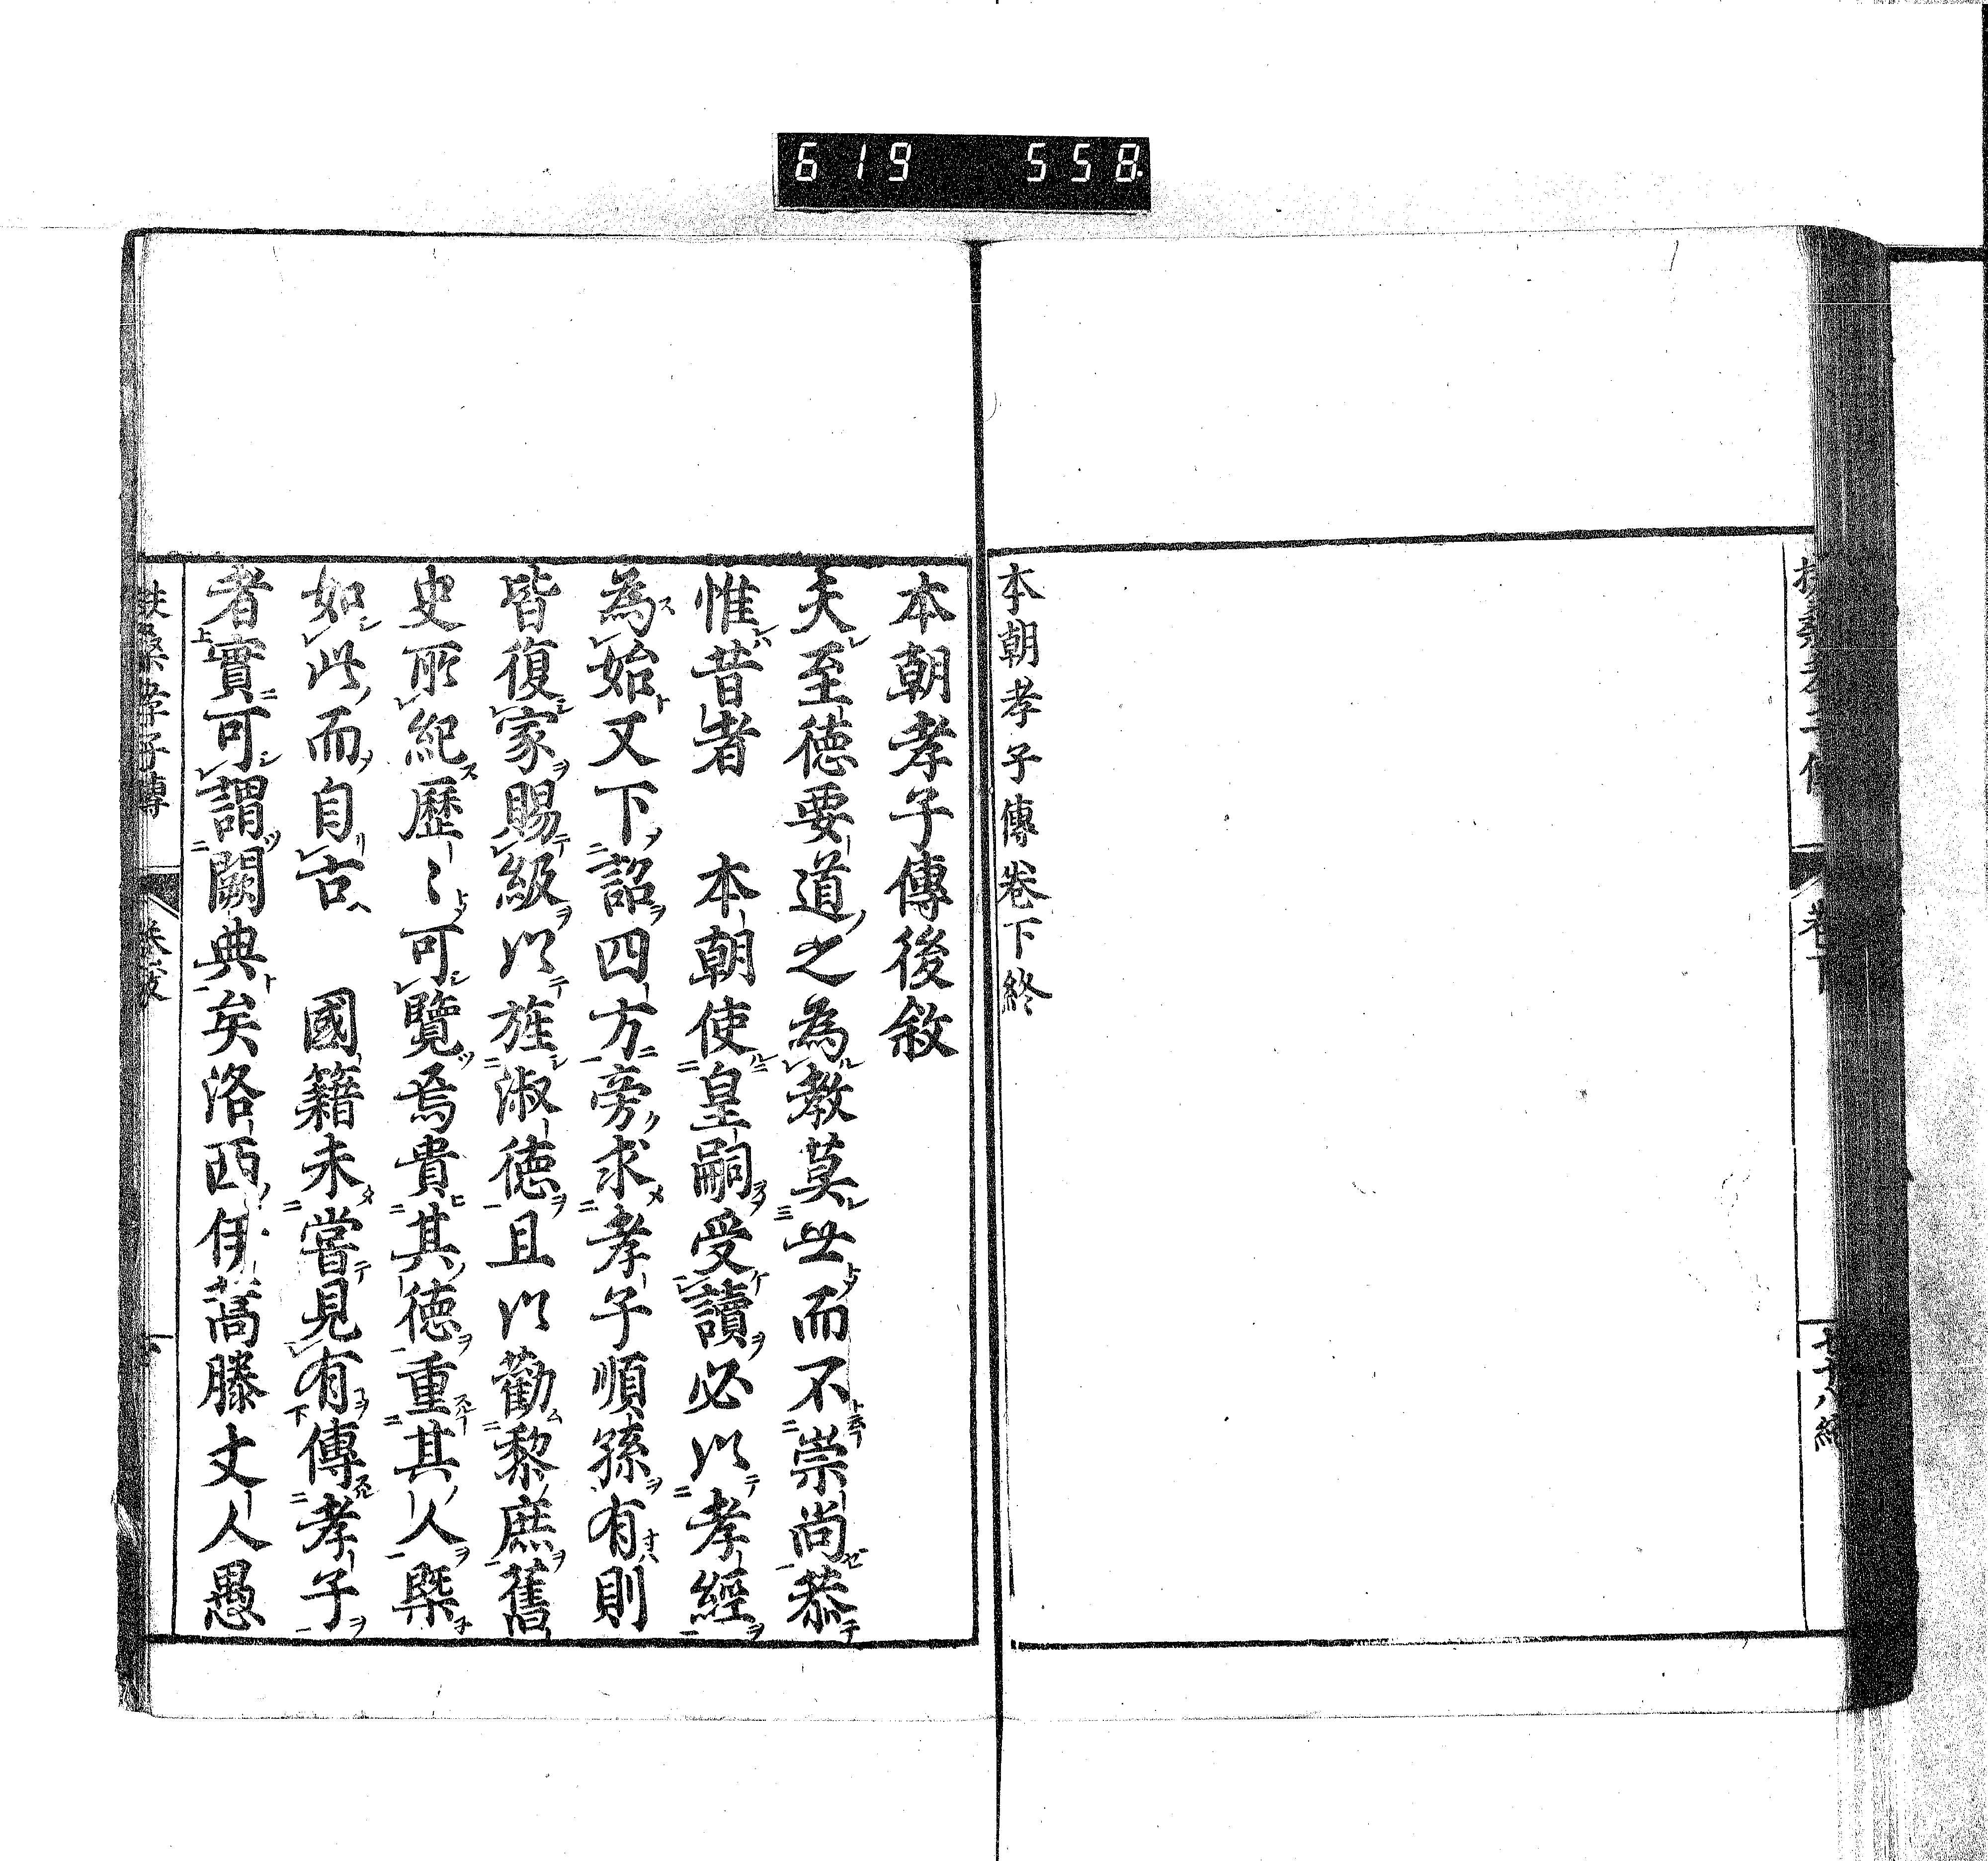 619 558
本朝孝子傳卷下終
本朝孝子傳後敘
夫至德要道之為教莫世而不崇尚恭
惟昔者　本朝使皇嗣受讀必以孝經
為始又下詔四方旁求孝子順孫有則
皆復家賜級以旌淑德且以勸黎庶舊
史所紀歷〻可覽焉貴其德重其人槩
如此而自古　國籍未嘗見有傳孝子
者實可謂闕典矣洛西伊蒿滕丈人愚
扶桑孝子傳